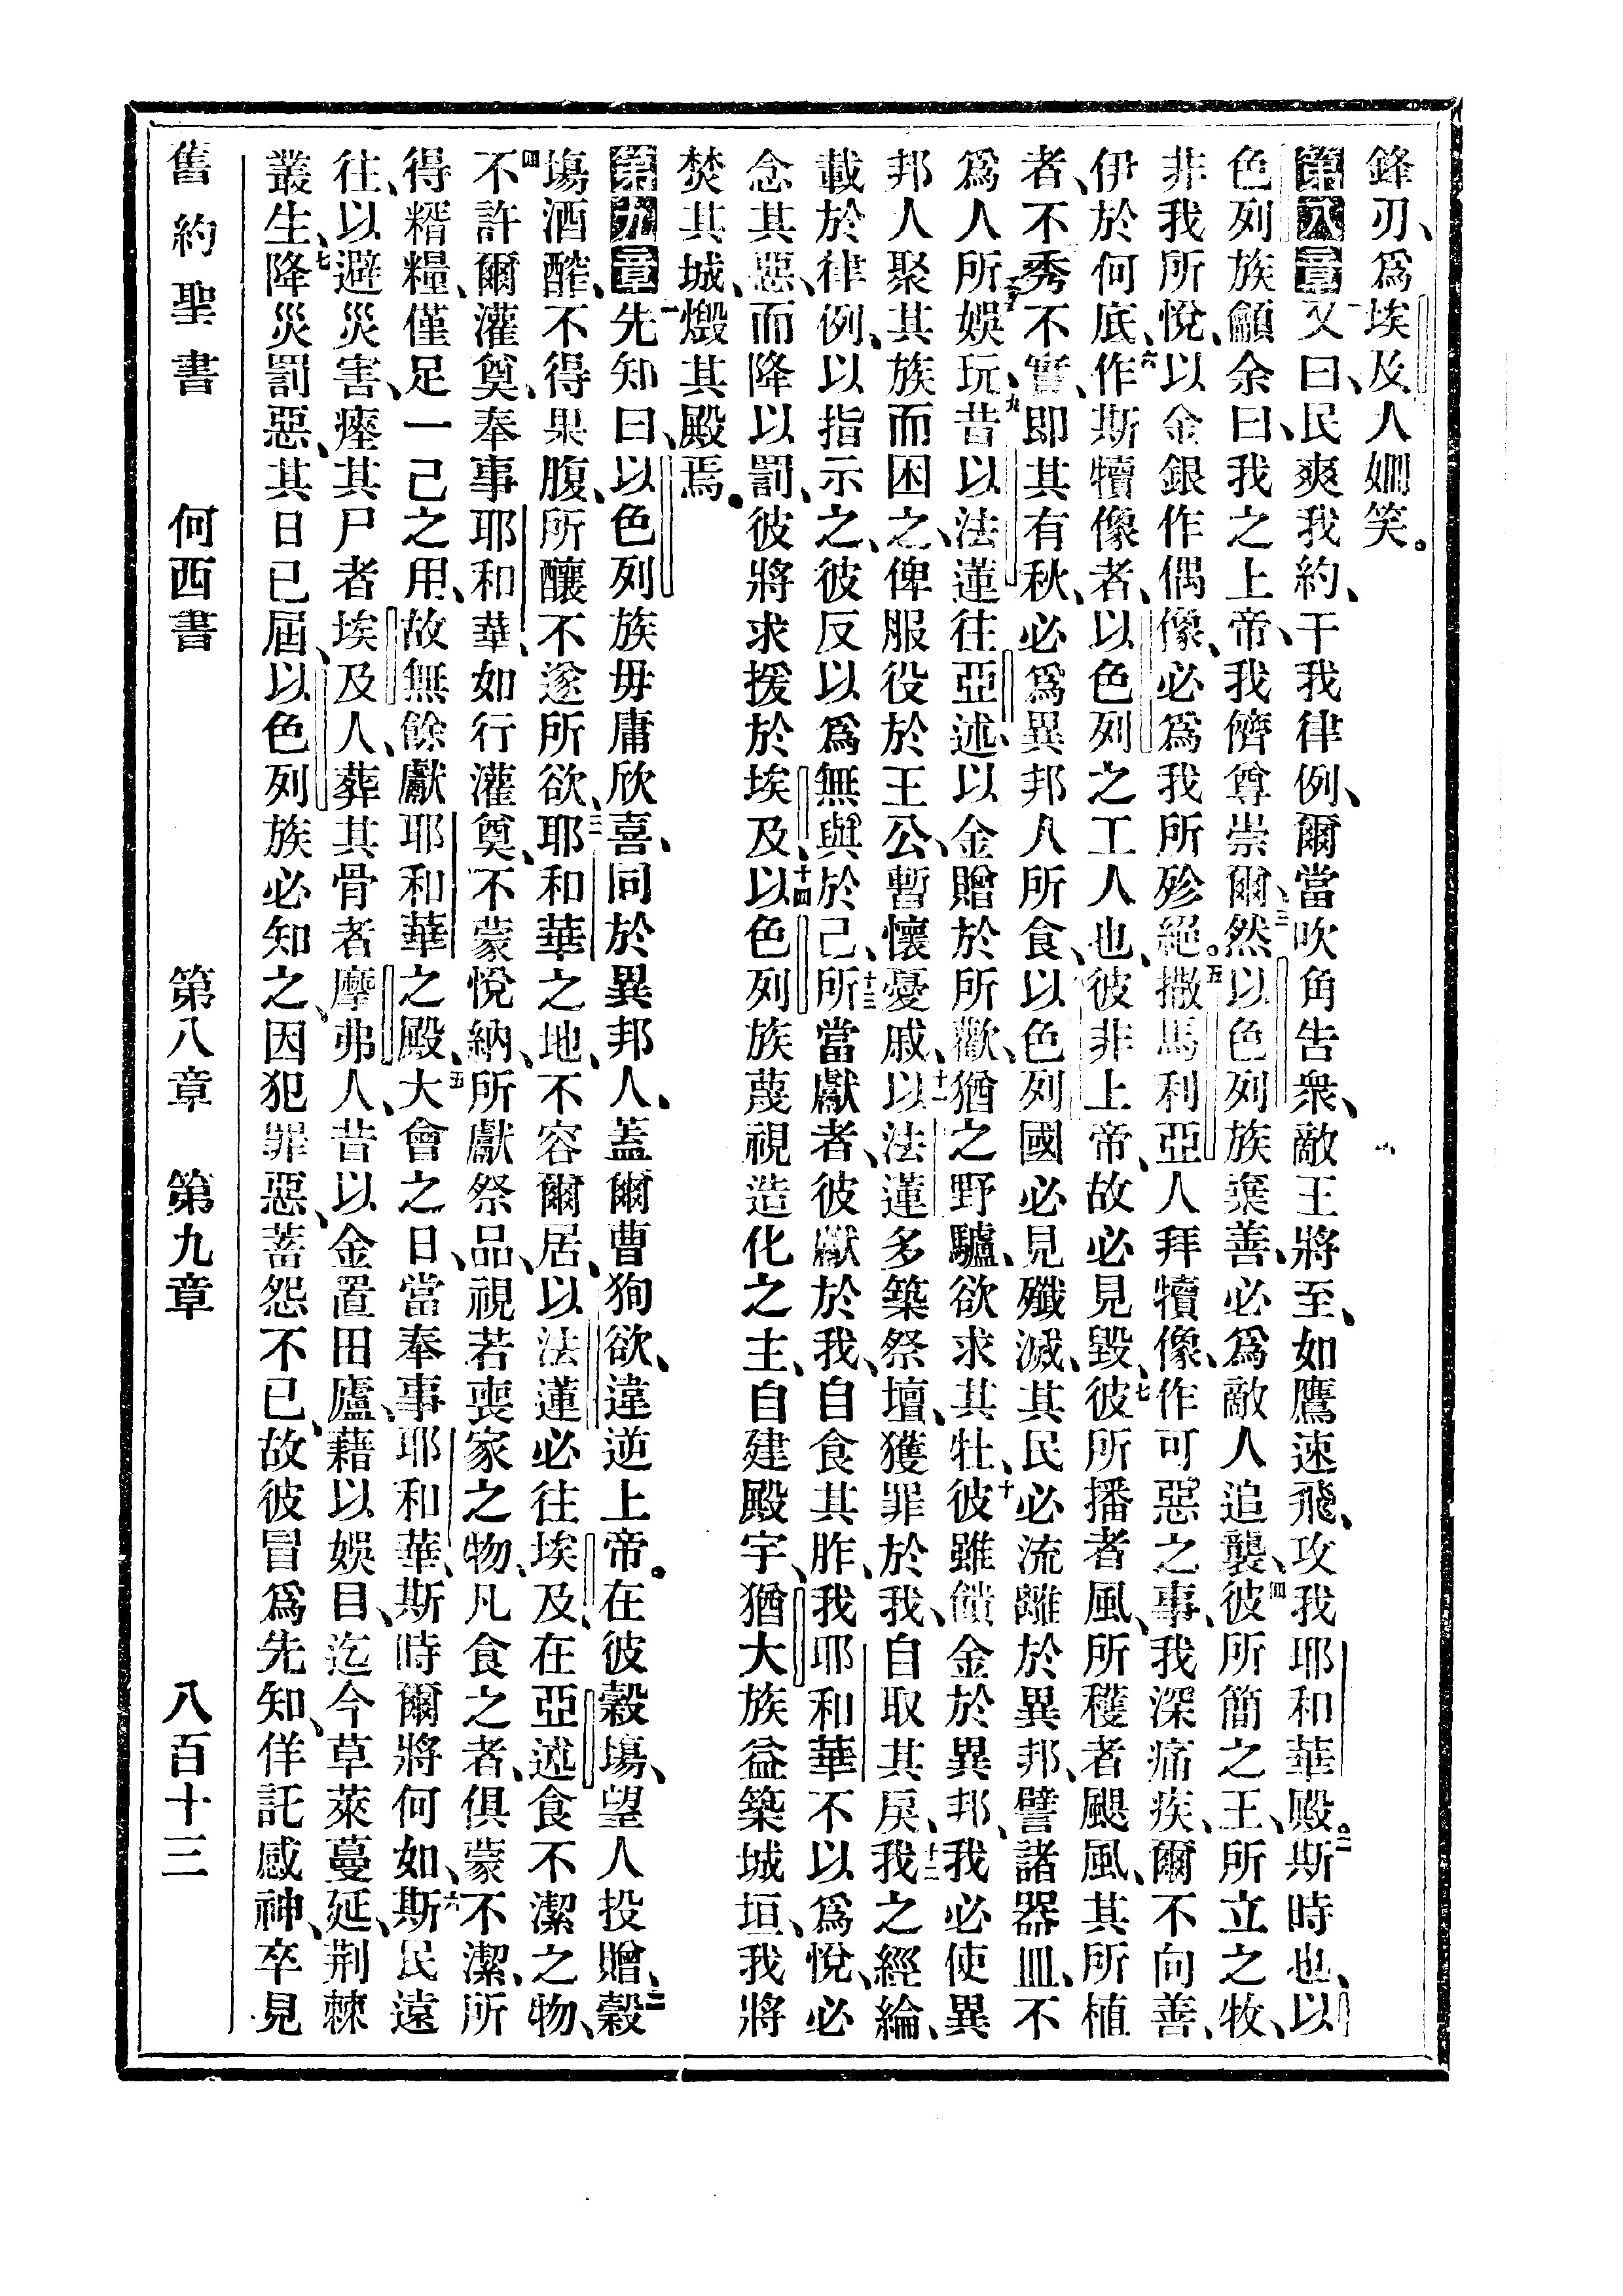 鋒刃、爲埃及人姍笑。
第八章一又曰、民爽我約、干我律例、爾當吹角告衆、敵王將至、如鷹速飛、攻我耶和華殿。二斯時也、以
色列族籲余曰、我之上帝、我儕尊崇爾、三然以色列族棄善、必爲敵人追襲、四彼所簡之王、所立之牧、
非我所悅、以金銀作偶像、必爲我所殄絕。五撒馬利亞人拜犢像、作可惡之事、我深痛疾、爾不向善、
伊於何底、六作斯犢像者、以色列之工人也、彼非上帝、故必見毀、七彼所播者風、所穫者颶風、其所植
者、不秀不實、卽其有秋、必爲異邦人所食、八以色列國必見殲滅、其民必流離於異邦、譬諸器皿、不
爲人所娛玩、九昔以法蓮往亞述、以金贈於所歡、猶之野驢、欲求其牡、十彼雖饋金於異邦、我必使異
邦人聚其族而困之、俾服役於王公、暫懷憂戚、十一以法蓮多築祭壇、獲罪於我、自取其戾、十二我之經綸、
載於律例、以指示之、彼反以爲無與於己、十三所當獻者、彼獻於我、自食其胙、我耶和華不以爲悅、必
念其惡、而降以罰、彼將求援於埃及、十四以色列族蔑視造化之主、自建殿宇、猶大族益築城垣、我將
焚其城、燬其殿焉。
第九章一先知曰、以色列族毋庸欣喜、同於異邦人、蓋爾曹狥欲、違逆上帝。在彼穀塲、望人投贈、二穀
塲酒醡、不得果腹、所釀不遂所欲、三耶和華之地、不容爾居、以法蓮必往埃及、在亞述食不潔之物、
四不許爾灌奠、奉事耶和華、如行灌奠、不蒙悅納、所獻祭品、視若喪家之物、凡食之者、俱蒙不潔、所
得糈糧、僅足一己之用、故無餘獻耶和華之殿、五大會之日、當奉事耶和華、斯時爾將何如、六斯民遠
往、以避災害、瘞其尸者、埃及人、葬其骨者、摩弗人、昔以金置田廬、藉以娛目、迄今草萊蔓延、荆棘
叢生、七降災罰惡、其日已屆、以色列族必知之、因犯罪惡、蓄怨不已、故彼冒爲先知、佯託感神、卒見
舊約聖書　何西書　第八章　第九章　八百十三